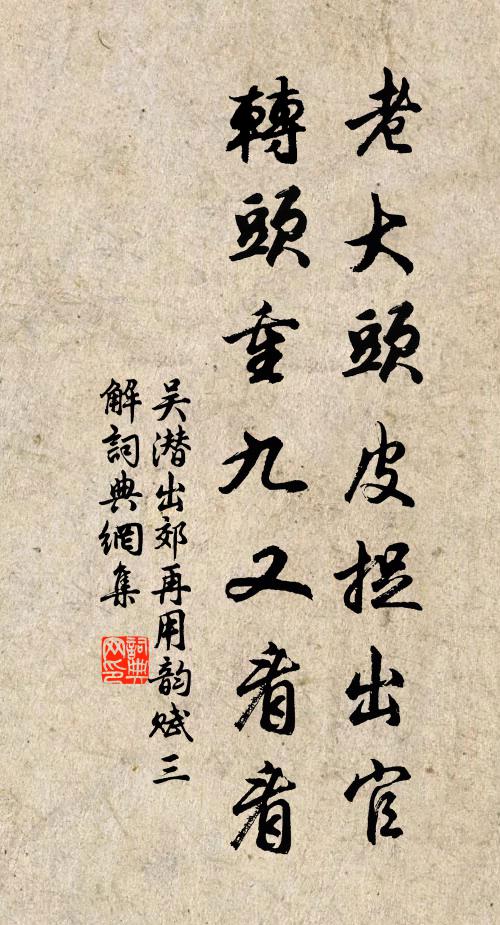 老大頭皮捉出官
轉頭重九又看看
吴潛出郊再用韵赋三
解詞典網集
詞典网印